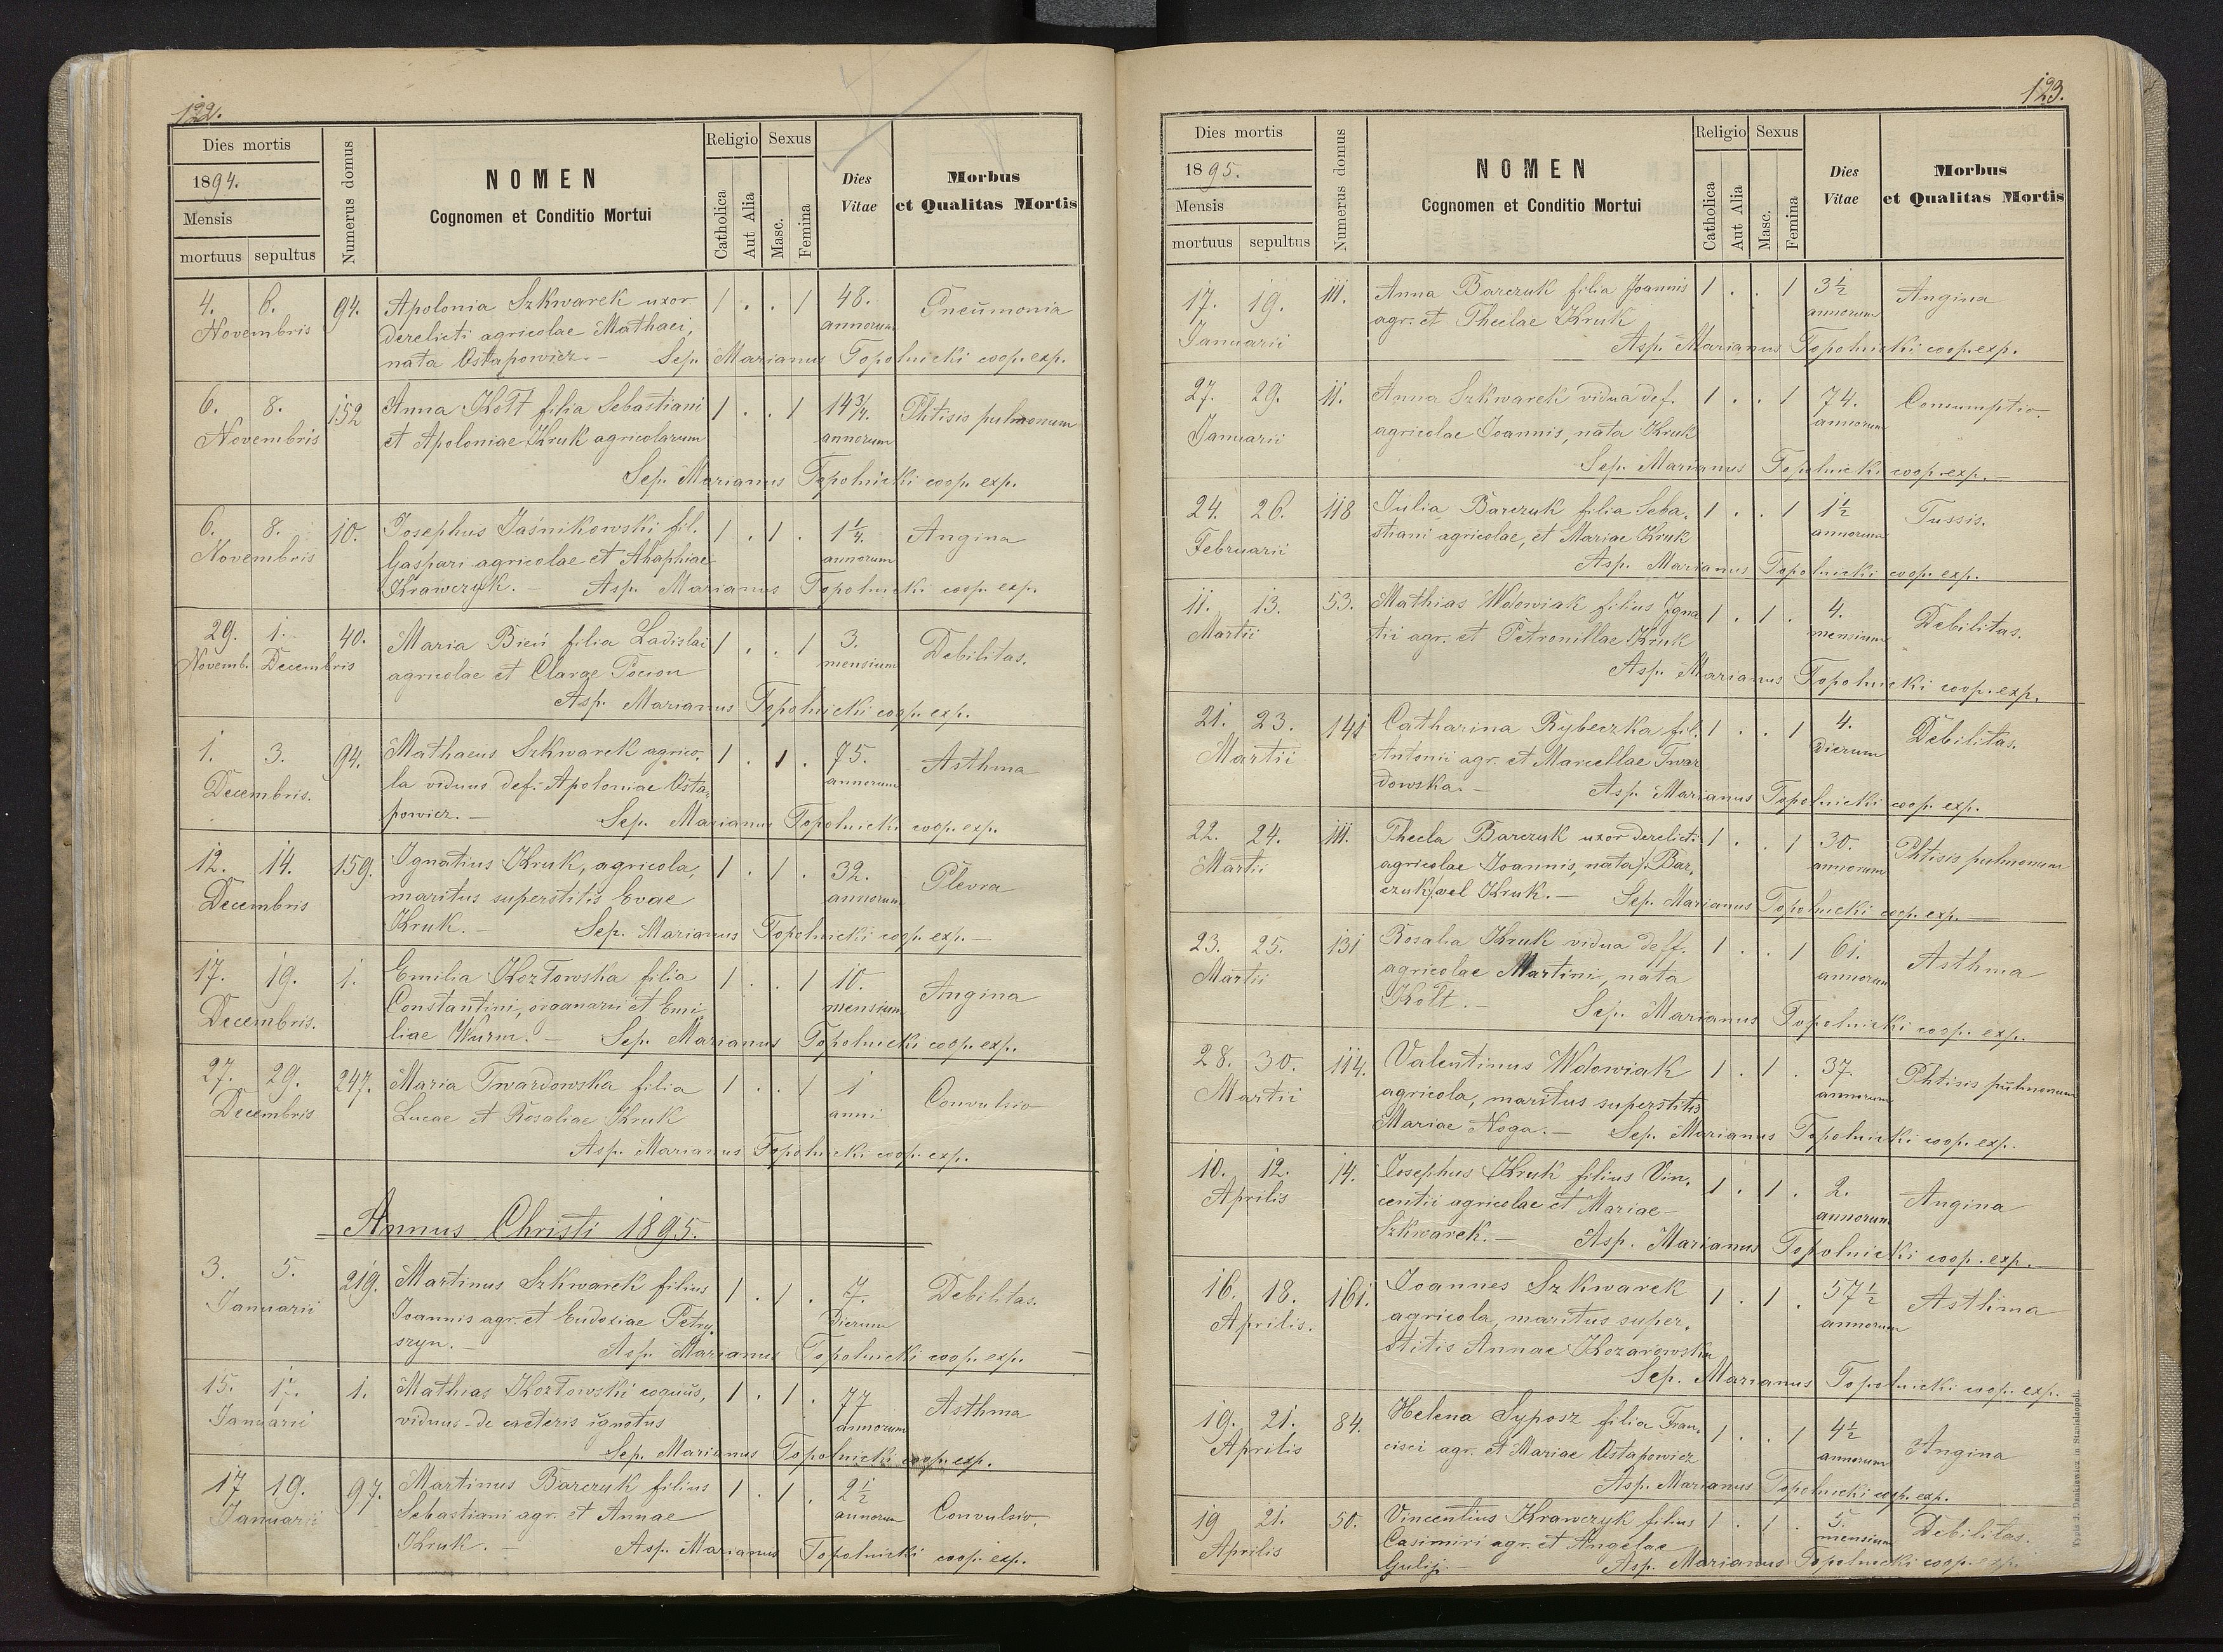 122.
Dies mortis
1894.
Mensis
mortuus sepultus
Numerus domus
NOMEN
Cognomen et Conditio Mortui
Religio
Catholica
Aut Alia
Sexus
Masc.
Femina
Dies
Vitae
Morbus
et Qualitas Mortis
4. 6. 94. Apolonia Szkwarek uxor 1 . . 1 48. Pneumonia
Novembris derelicti agricolae Mathaei, annorum
nata Ostapowicz. – Sep. Marianus Topolnicki coop. exp.
6. 8. 152 Anna Kołt filia Sebastiani 1 . . 1 14 3/4. Phtisis pulmonum
Novembris et Apoloniae Kruk agricolarum annorum
Sep. Marianus Topolnicki coop. exp.
6. 8. 10. Josephus Jaśnikowski fil. 1 . 1 . 1 1/4. Angina
Novembris Gaspari agricolae et Ahaphiae annorum
Krawczyk. – Asp. Marianus Topolnicki coop. exp.
29. 1. 40. Maria Bień filia Ladislai 1 . . 1 3. Debilitas.
Novemb. Decembris agricolae et Clarae Pocion mensium
Asp. Marianus Topolnicki coop. exp.
1. 3. 94. Mathaeus Szkwarek agrico- 1 . 1 . 75. Asthma
Decembris. la viduus def. Apoloniae Osta- annorum
powicz. – Sep. Marianus Topolnicki coop. exp.
12. 14. 159. Ignatius Kruk, agricola, 1 . 1 . 32. Plevra
Decembris maritus superstitis Evae annorum
Kruk. – Sep. Marianus Topolnicki coop. exp. –
17. 19. 1. Emilia Kozłowska filia 1 . . 1 10. Angina
Decembris. Constantini, organarii et Emi- mensium
liae Wurm. – Sep. Marianus Topolnicki coop. exp.
27. 29. 247. Maria Twardowska filia 1 . . 1 1 Convulsio
Decembris Lucae et Rosaliae Kruk anni
Asp. Marianus Topolnicki coop. exp.
Annus Christi 1895.
3. 5. 219. Martinus Szkwarek filius 1 . 1 . 7. Debilitas.
Januarii Joannis agr. et Eudoxiae Petry- dierum
szyn. – Asp. Marianus Topolnicki coop. exp. –
15. 17. 1. Mathias Kozłowski coquus, 1 . 1 . 77 Asthma
Januarii viduus - de caeteris ignotus annorum
Sep. Marianus Topolnicki coop. exp.
17 19. 97. Martinus Barczuk filius 1 . 1 . 2 1/2 Convulsio.
Januarii Sebastiani agr. et Annae annorum
Kruk. – Asp. Marianus Topolnicki coop. exp.
123.
Dies mortis
1895.
Mensis
mortuus sepultus
Numerus domus
NOMEN
Cognomen et Conditio Mortui
Religio
Catholica
Aut Alia
Sexus
Masc.
Femina
Dies
Vitae
Morbus
et Qualitas Mortis
17. 19. 111. Anna Barczuk filia Joannis 1 . . 1 3 1/2 Angina
Januarii agr. et Theclae Kruk annorum
Asp. Marianus Topolnicki coop. exp.
27. 29. 11. Anna Szkwarek vidua def. 1 . . 1 74. Consumptio
Januarii agricolae Joannis, nata Kruk annorum
Sep. Marianus Topolnicki coop. exp. –
24. 26. 118 Julia Barczuk filia Seba- 1 . . 1 1 1/2 Tussis.
Februarii stiani agricolae, et Mariae Kruk annorum
Asp. Marianus Topolnicki coop. exp.
11. 13. 53. Mathias Wdowiak filius Igna 1 . 1 . 4. Debilitas.
Martii tii agr. et Petronillae Kruk mensium
Asp. Marianus Topolnicki coop. exp.
21. 23. 141 Catharina Rybeczka fil. 1 . . 1 4. Debilitas.
Martii Antonii agr. et Marcellae Twar dierum
dowska. – Asp. Marianus Topolnicki coop. exp.
22. 24. 111. Thecla Barczuk uxor derelicti 1 . . 1 30. Phtisis pulmonum
Martii agricolae Joannis, nata /: Bar- annorum
czuk :/ vel Kruk. – Sep. Marianus Topolnicki coop. exp. –
23. 25. 131 Rosalia Kruk vidua deff. 1 . . 1 61. Asthma
Martii agricolae Martini, nata annorum
Kołt. – Sep. Marianus Topolnicki coop. exp.
28. 30. 114. Valentinus Wdowiak 1 . 1 . 37. Phtisis pulmonum
Martii agricola, maritus superstitis annorum
Mariae Noga. – Sep. Marianus Topolnicki coop. exp.
10. 12. 14. Josephus Kruk filius Vin- 1 . 1 . 2. Angina
Aprilis centii agricolae et Mariae annorum
Szkwarek. – Asp. Marianus Topolnicki coop. exp. –
16. 18. 161. Joannes Szkwarek 1 . 1 . 57 1/2 Asthma
Aprilis. agricola, maritus super- annorum
stitis Annae Kozarowska
Sep. Marianus Topolnicki coop. exp.
19. 21. 84. Helena Syposz filia Fran- 1 . . 1 4 1/2 Angina
Aprilis cisci agr. et Mariae Ostapowicz annorum
Asp. Marianus Topolnicki coop. exp.
19 21. 50. Vincentius Krawczyk filius 1 . 1 . 5. Debilitas.
Aprilis Casimiri agr. et Angelae mensium
Gulij. – Asp. Marianus Topolnicki coop. exp.
Typis J. Dankiewicz in Stanislaopoli